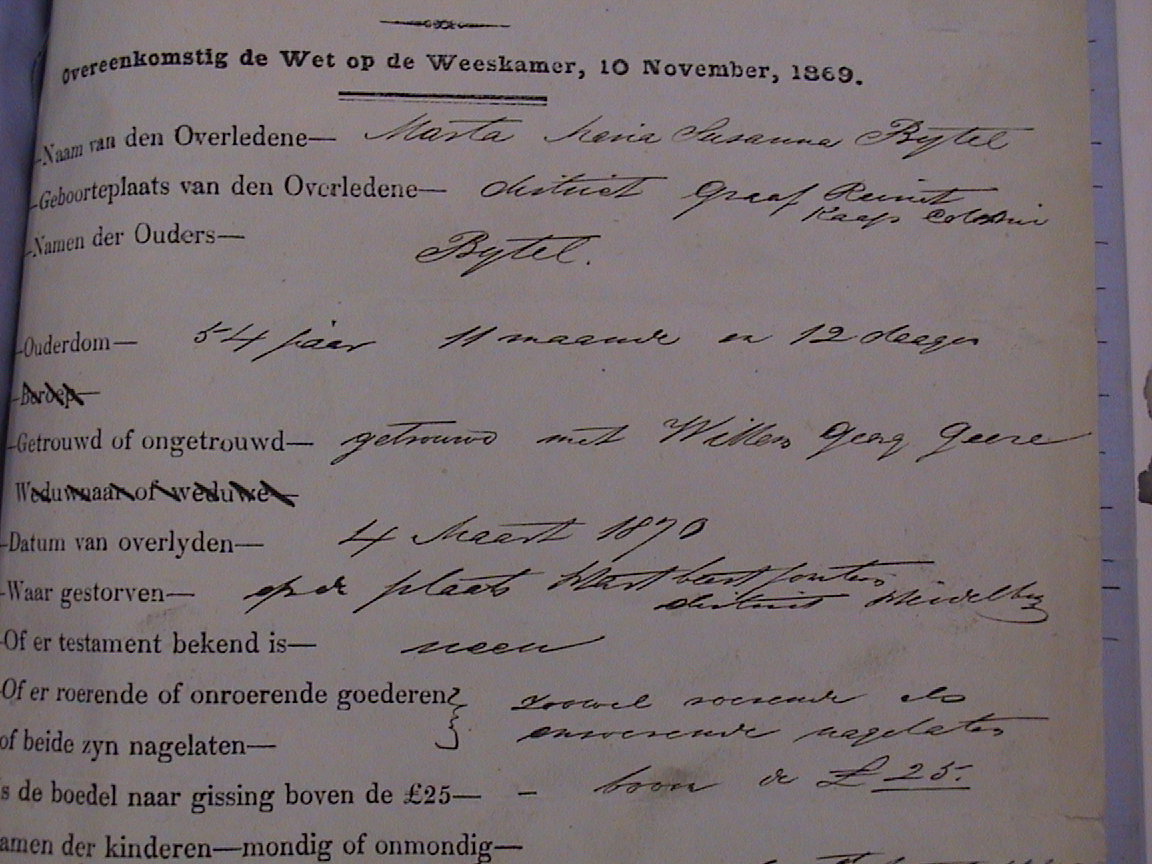 Overeenkomstig de Wet op de Weeskamer, 10 November, 1869.
—Naam van den Overledene— Marta Maria Susanna Bytel
—Geboorteplaats van den Overledene— district Graaf Reinet
Kaaps Colonie
—Namen der Ouders— Bytel.
—Ouderdom— 54 jaar 11 maande en 12 daagen
—Beroep—
—Getrouwd of ongetrouwd— getrouwd met Willem Georg
Weduwnaar of weduwe—
—Datum van overlyden— 4 Maart 1870
—Waar gestorven— op de plaats Hartbeestfontein
district Heidelberg
—Of er testament bekend is— neen
—Of er roerende of onroerende goederen } zoowel roerende als
of beide zyn nagelaten— onroerende nagelaten
s de boedel naar gissing boven de £25— – boven de £ 25.
amen der kinderen—mondig of onmondig—